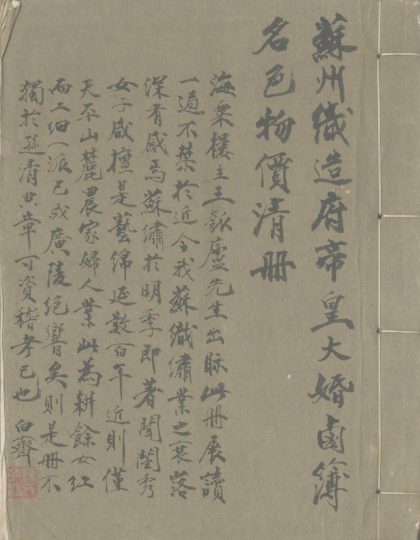 蘇州織造府帝皇大婚鹵簿
名色物價清冊
海粟樓主王瓠廬先生出眎此冊展讀
一過不禁於近今我蘇織繡業之衰落
深有感焉蘇繡於明季即著聞閨秀
女子咸擅是藝綿延數百年近則僅
天平山麓農家婦人業此為耕餘女紅
而工細一派已成廣陵絕響矣則是冊不
獨於遜清典章可資稽考已也 白齊